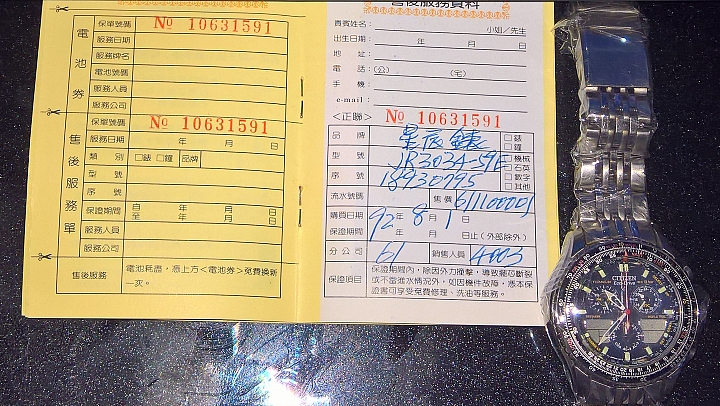 保單號碼 № 10631591
服務日期
服務牌名
電池號碼
服務人員
服務公司
電池券
保單號碼 № 10631591
服務日期 年 月 日
類別 □錶 □鐘 品牌
型號
序號
保證期間 自 年 月 日
至 年 月 日
服務人員
服務公司
售後服務單
售後服務 電池耗盡,憑上方<電池券>免費換新
一次。
售後服務資料
貴賓姓名: 小姐/先生
出生日期: 年 月 日
地址:
電話:(公) (宅)
手機:
e-mail:
<正聯> № 10631591
品牌 星辰錶 □錶
□鐘
型號 JR3034-59E □機械
□石英
序號 18930795 □數字
□其他
流水號碼 售價 611100001
購買日期 92年 8月 1日
保證期間 年 月 日止(外部除外)
分公司 61 銷售人員 4003
保證項目 保證期間內,除因外力撞擊,導致錶芯斷裂
或不當進水情況外,如因機件故障,憑本保
證書可享受免費修理、洗油等服務。
CITIZEN